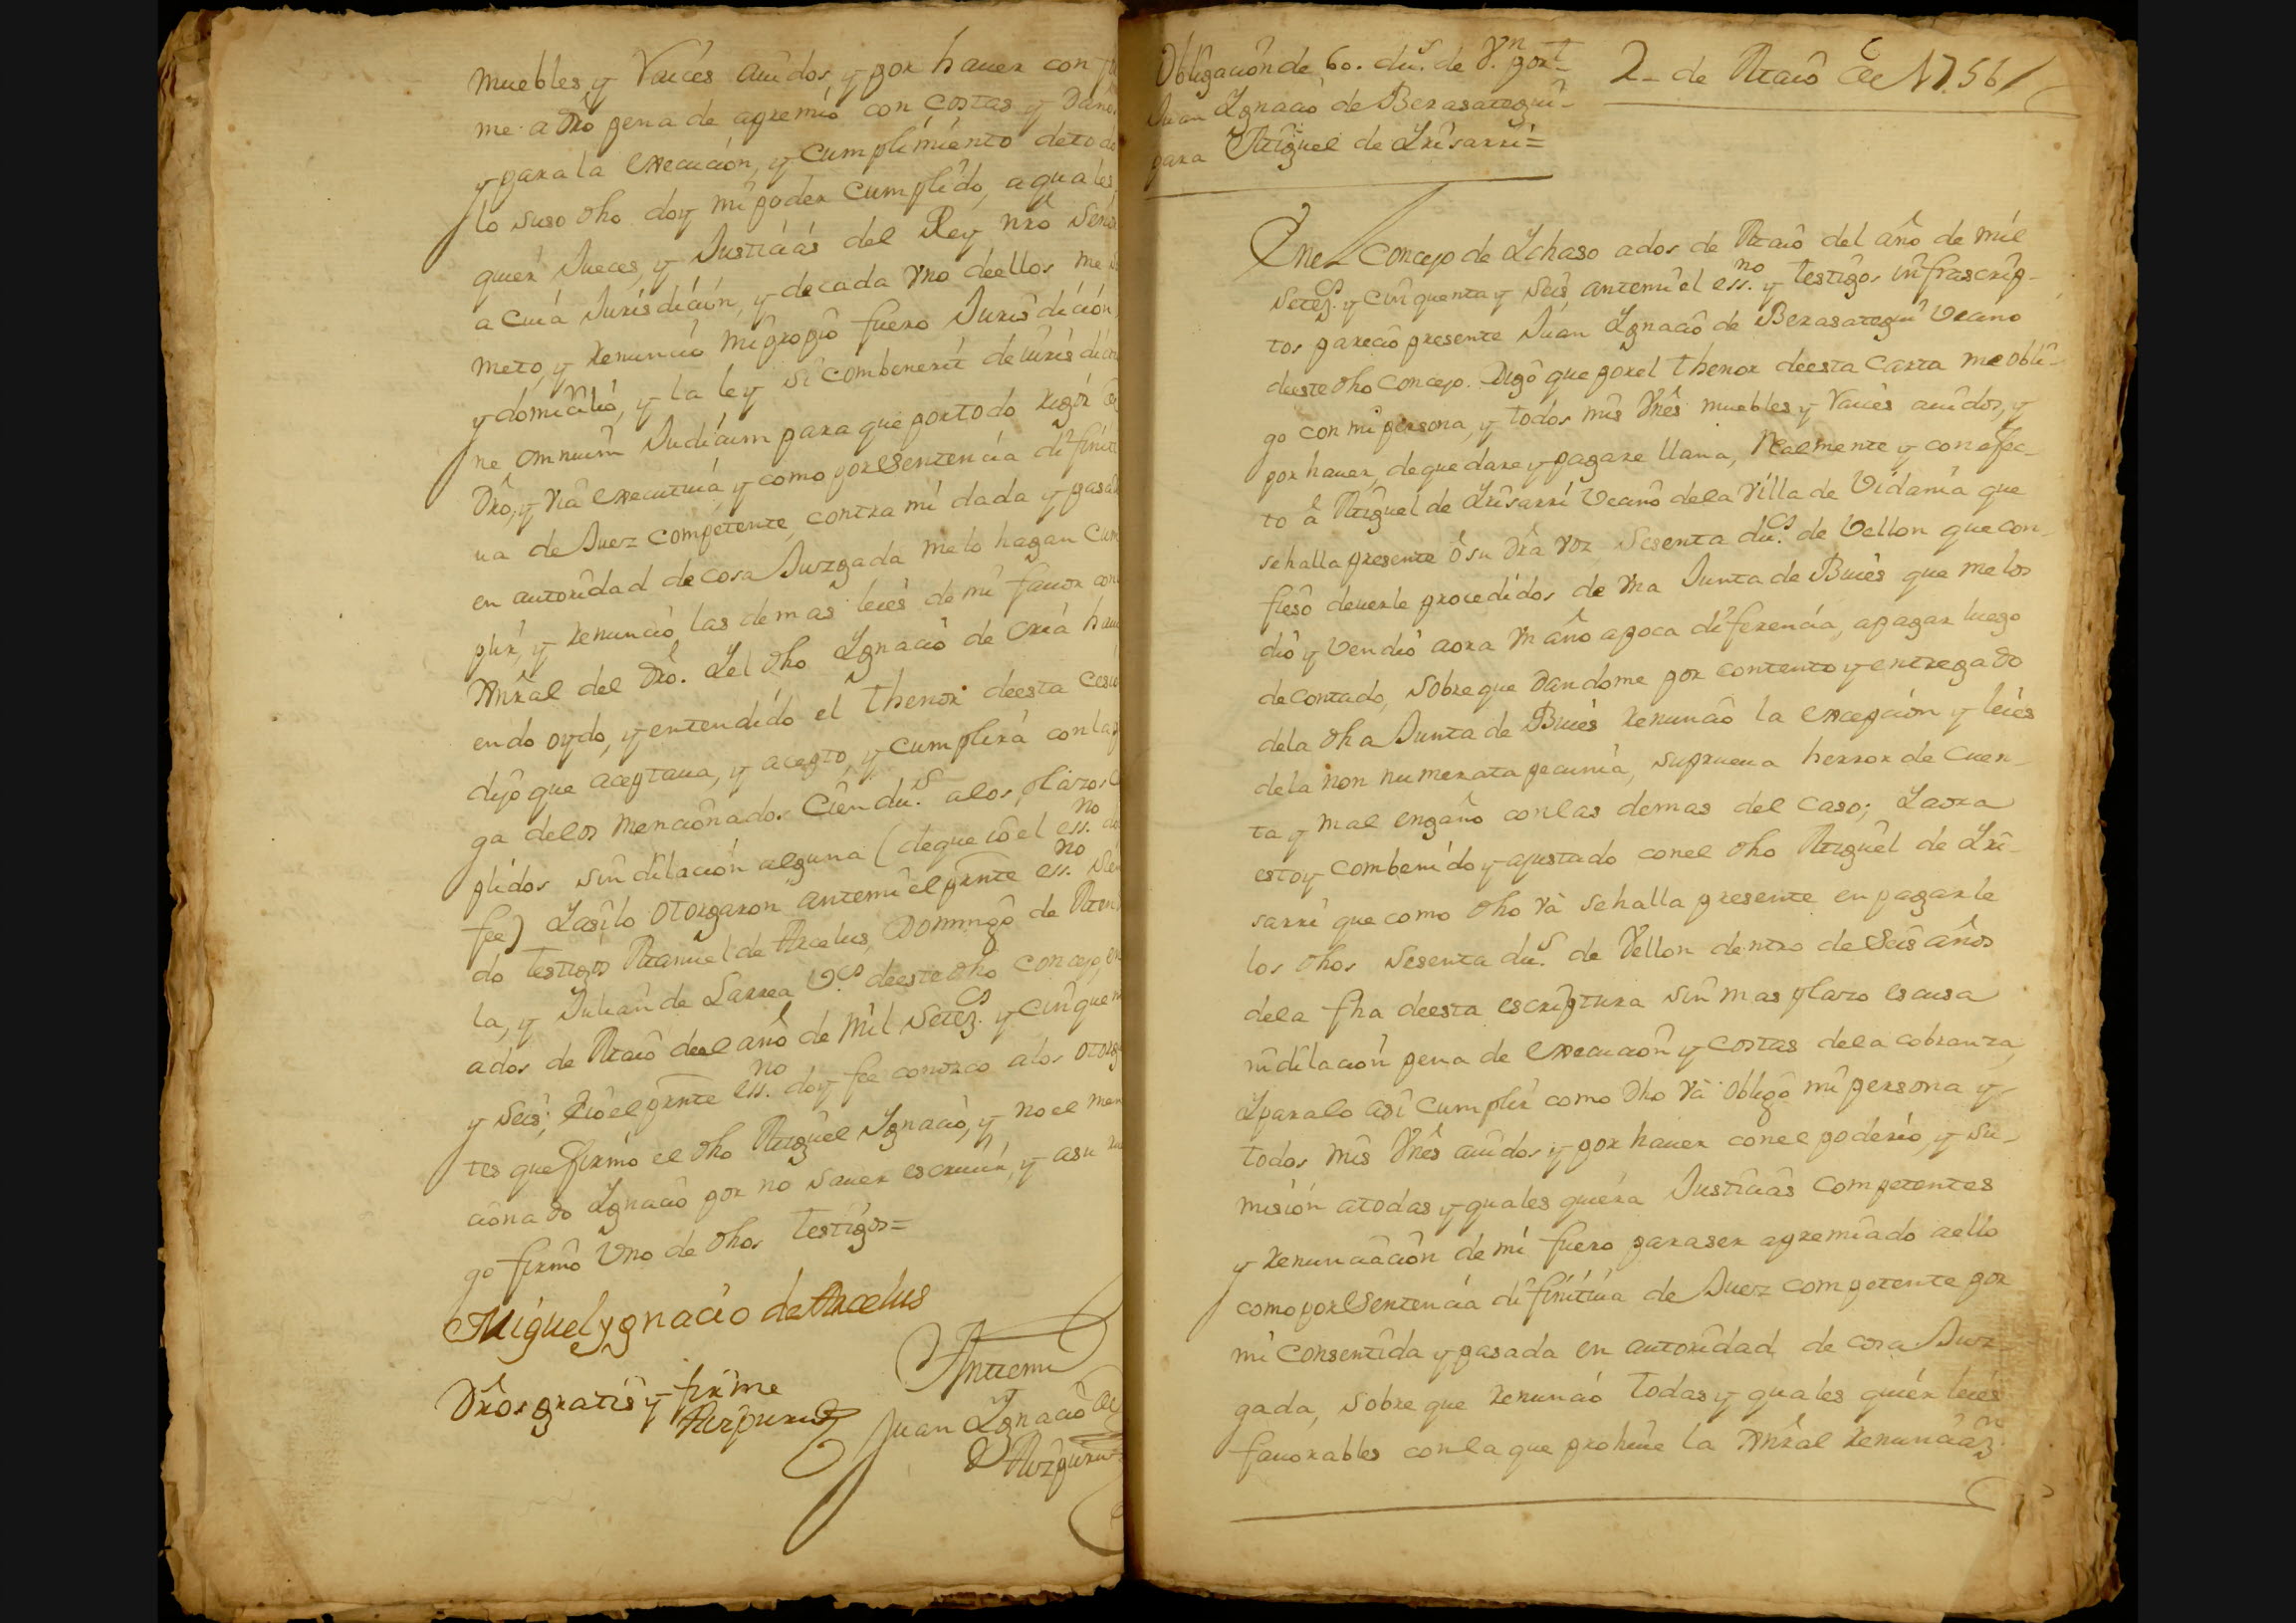 muebles, y Raices auidos, y por hauer con
me a dro pena de apremio con costas y daños
y para la execucion, y cumplimiento de todo
lo suso dho doy mi poder cumplido, a quales
quier Jueces, y Justicias del Rey nro Señor
a cuia Jurisdicion, y de cada vno de ellos me
meto, y renuncio mi propio fuero Jurisdicion
y domicilio, y la ley si combenerit de iurisdicio
ne omnium Judicum para que por todo rigor de
dro, y via executiua, y como por sentencia difiniti
ua de Juez competente, contra mi dada y pasada
en autoridad de cosa Juzgada me lo hagan cum
plir, y renuncio las demas leies de mi fauor con
gnral del dro. Y el dho Ygnacio de Oria haui
endo oydo, y entendido el thenor de esta cesion
dijo que aceptaua, y acepto, y cumplira con la pa
ga delos mencionados Cien du.s alos plazos
plidos sin dilacion alguna (de que io el ess.no doi
fee) Y asi lo otorgaron ante mi el prnte ess.no sien
do testigos Manuel de Arcelus, Domingo de
la, y Julian de Larrea v.os de este dho concejo, en
a dos de Maio del año de mil setez.os y cinquenta
y seis; E io el prnte ess.no doy fee conozco a los otorgan
tes que firmo el dho Miguel Ygnacio, y no el men
cionado Ygnacio por no sauer escriuir, y a su rue
go firmo vno de dhos testigos=
Miguel ygnacio de Arcelus
Ante mi
Dros gratis y firme
Aizpuru
Juan Ygnacio de
Aizpuru
Obligacion de 60. du.s de V.n por
Juan Ygnacio de Berasategui
para Miguel de Yrisarri=
2 de Maio de 1756
En el Concejo de Ychaso a dos de Maio del año de mil
setez.os y cinquenta y seis, ante mi el ess.no y testigos infrascrip-
tos parecio presente Juan Ygnacio de Berasategui vecino
de este dho concejo. Digo que por el thenor de esta carta me obli-
go con mi persona, y todos mis vnes muebles y Raices auidos, y
por hauer, de que dare y pagare llana, Realmente y con efec-
to â Miguel de Yrisarri vecino de la Villa de Vidania que
se halla presente ó su dra voz sesenta du.os de Vellon que con-
fieso deuerle procedidos de vna Junta de Buies que me los
dio y vendio aora vn año a poca diferencia, a pagar luego
de contado, sobre que dandome por contento y entregado
de la dha Junta de Buies renuncio la excepcion y leies
de la non numerata pecunia, su prueua herror de cuen-
ta y mal engaño con las demas del caso; Y aora
estoy combenido y ajustado con el dho Miguel de Yri-
sarri que como dho va se halla presente en pagarle
los dhos sesenta du.s de Vellon dentro de seis años
de la fha de esta escriptura sin mas plazo escusa
ni dilacion pena de execucion y costas de la cobranza,
Y para lo asi cumplir como dho va obligo mi persona y
todos mis vnes auidos y por hauer con el poderio, y su-
mision a todas y quales quiera Justicias competentes
y renunciacion de mi fuero para ser apremiado a ello
como por sentencia difinitiua de Juez competente por
mi consentida y pasada en autoridad de cosa Juz-
gada, sobre que renuncio todas y quales quier leies
fauorables con la que prohiue la gnral renunciaz.on